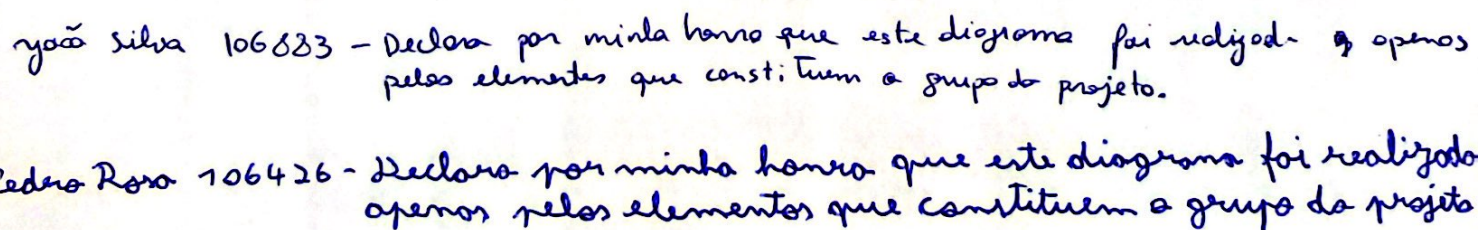 João Silva 106883 - Declaro por minha honra que este diagrama foi realizado apenas
pelos elementos que constituem o grupo do projeto.
Pedro Rosa 106426 - Declaro por minha honra que este diagrama foi realizado
apenas pelos elementos que constituem o grupo do projeto